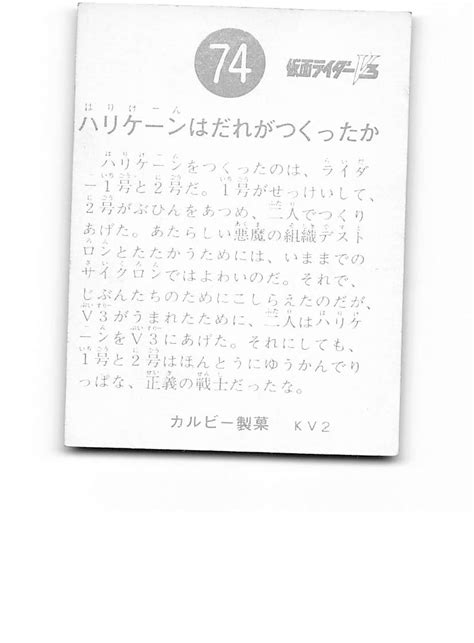 74
仮面ライダーV3
はりけーん
ハリケーンはだれがつくったか
ハリケーンをつくったのは、ライダ
ー1号と2号だ。1号がせっけいして、
2号がぶひんをあつめ、二人でつくり
あげた。あたらしい悪魔の組織デスト
ロンとたたかうためには、いままでの
サイクロンではよわいのだ。それで、
じぶんたちのためにこしらえたのだが、
V3がうまれたために、二人はハリケ
ーンをV3にあげた。それにしても、
1号と2号はほんとうにゆうかんでり
っぱな、正義の戦士だったな。
カルビー製菓 KV2